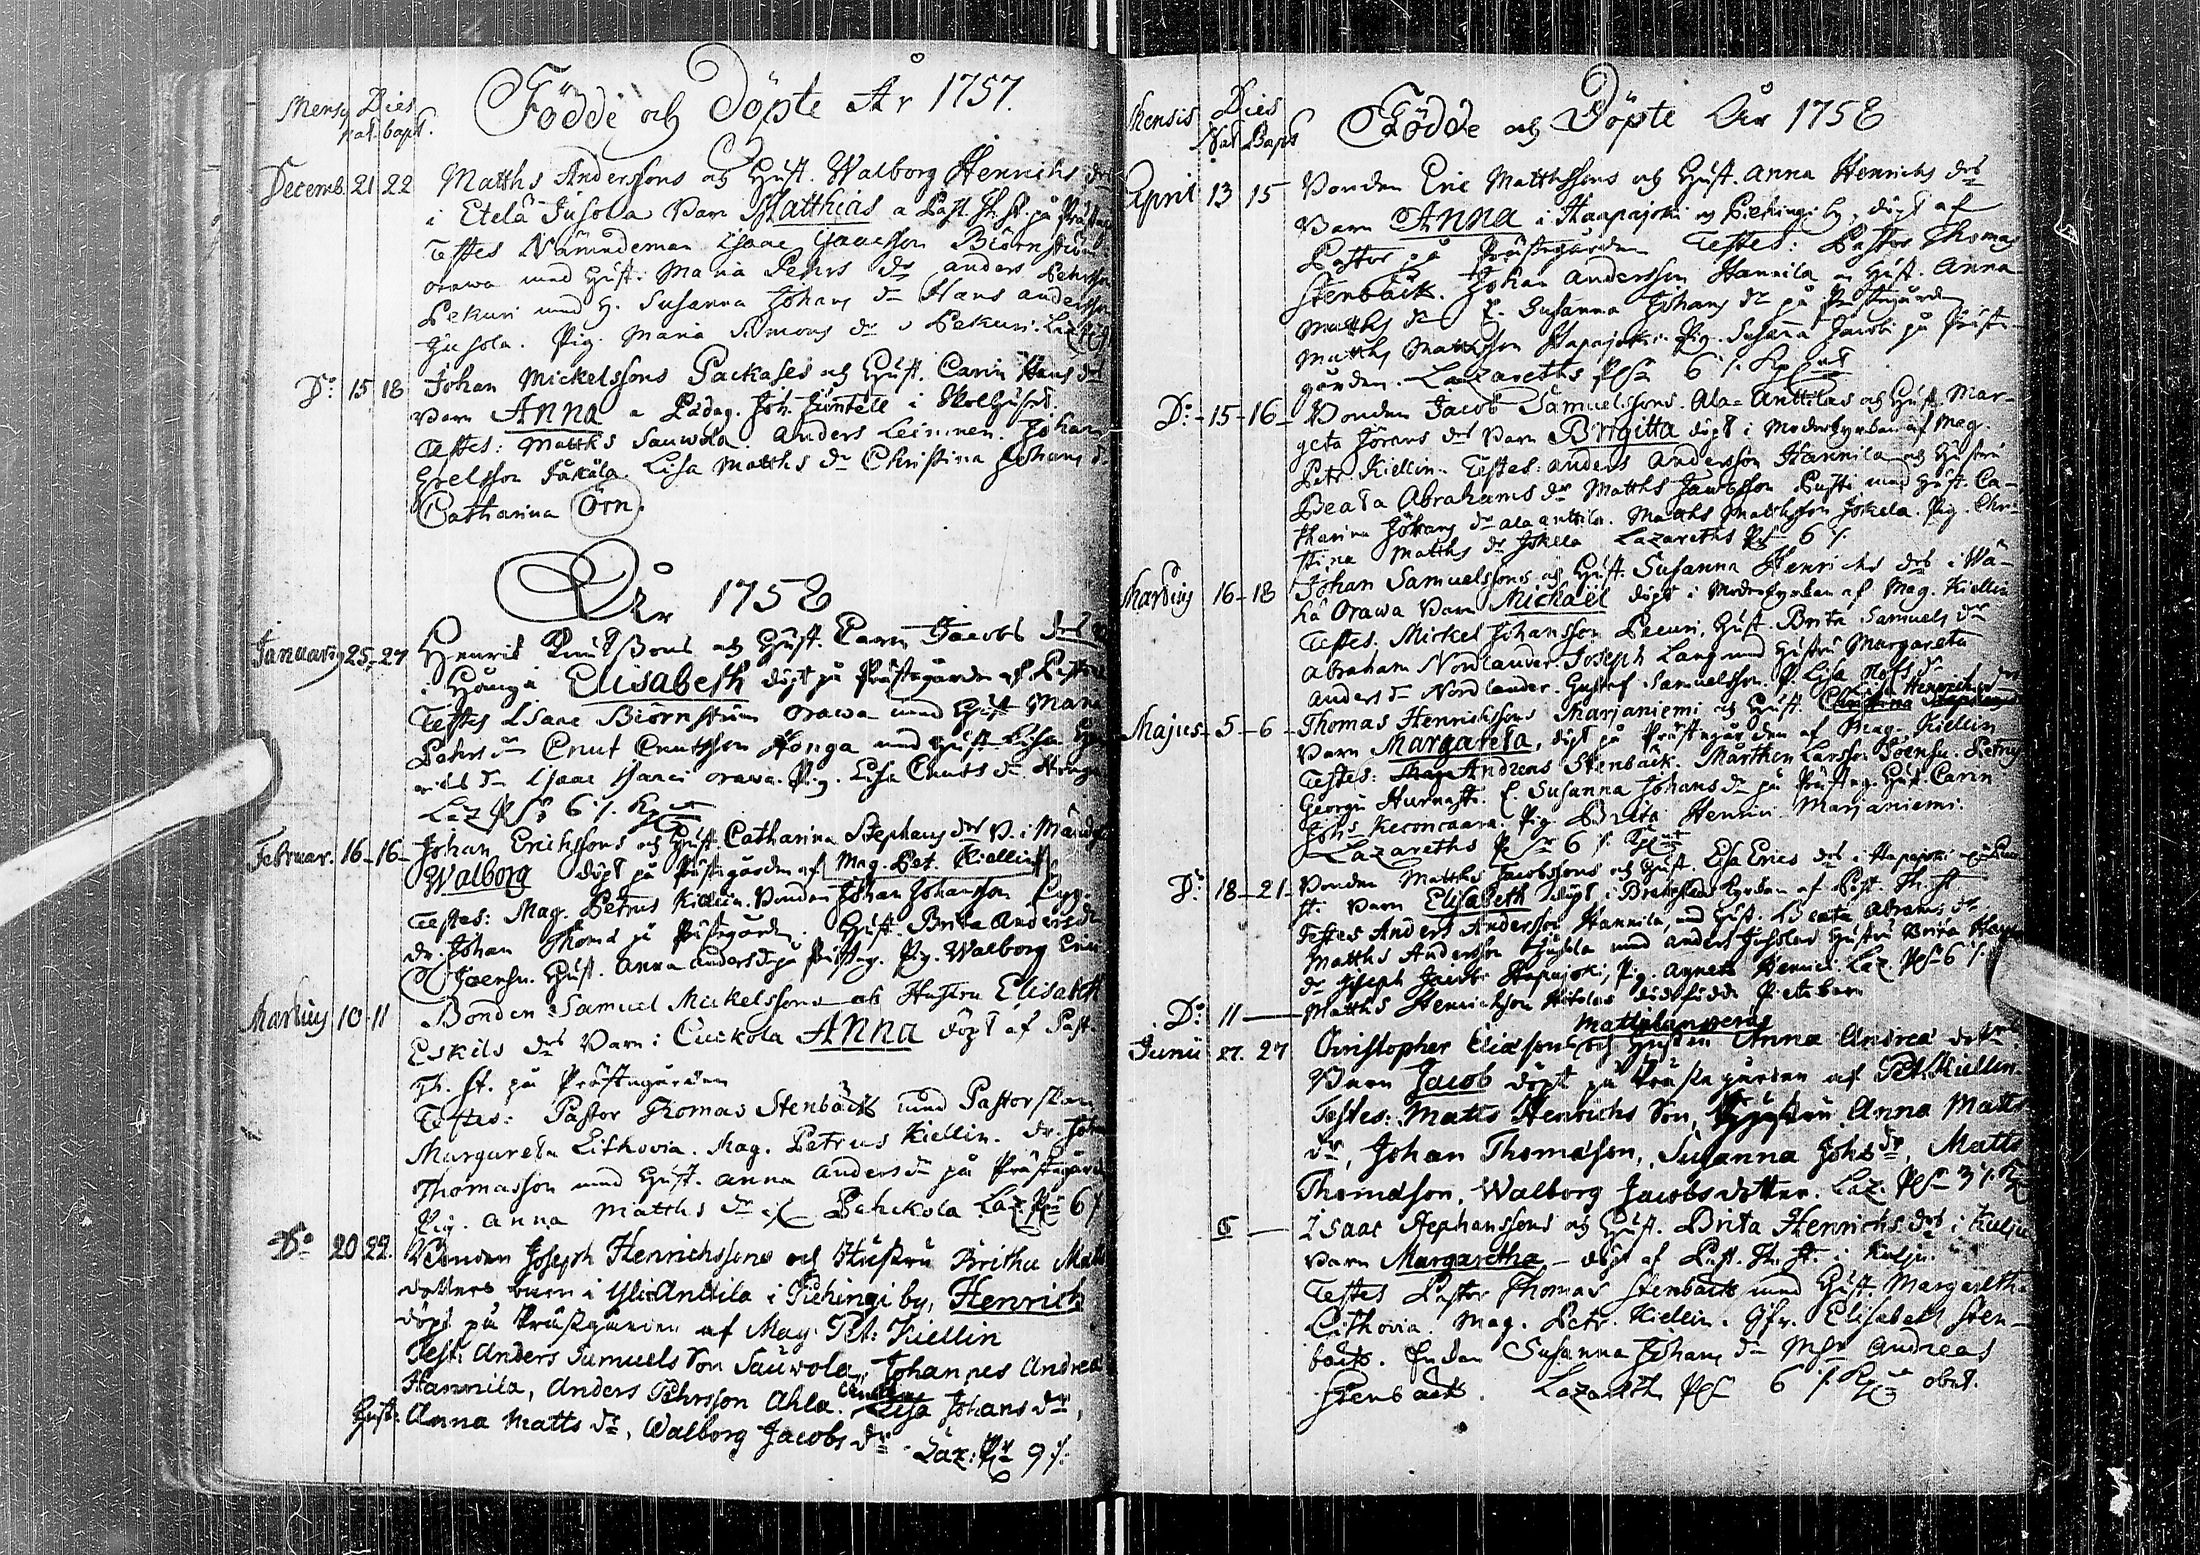 Mensis Dies
nat. bapt.
Födde och Döpte År 1757.
Decemb. 21 22 Matths Anderssons och Hust. Walborg Henrichs drs
i Etelä Juhola Barn Matthias a Past. Th. St. på Prästeg
Testes Nämndeman Isaac Isaacsson Biörnström
orawa med Hust. Maria Pehrs dr anders Pehrsson
Pekuri med H. Susanna Johans dr Hans andersson
Juhola. Pig. Maria Simons dr Pekuri. Laz
Do 15 18 Johan Mickelssons Packases och Hust. Carin Hans drs
Barn Anna a Pädag. Joh. Juntell i Skolhuset
Testes: Matths Sauwola. Anders Leininen. Johan
Grelsson Jakäla. Lisa Matths dr Christina Johans dr
Catharina Örn.
År 1758
Januarius 25-27 Henrik Knutssons och Hust. Caren Jacobs drs
i Honga Elisabeth döpt på Prästegården af Pastor
Testes Isaac Biörnström Orawa med Hust Maria
Pehrs dr Cnut Cnutsson Honga med Hust Lisa
dr Isaac Isaaci orawa. Pig. Lisa Cnuts dr Honga
Laz 6
Februar. 16-16 Johan Erichssons och Hust. Catharina Stephans drs B. i
Walborg döpt på Prästegården af Mag. Pet. Kiellin
Testes: Mag. Petrus Kiellin. Bonden Johan Johansson
dr. Johan Thomæ på Prästegården. Hust. Brita Anders dr
Joensu. Hust. Anna Anders dr på Prästeg. Pig. Walborg
Martius 10 11 Bonden Samuel Mickelssons och Hustru Elisabeth
Eskils drs Barn i Cuckola Anna döpt af Past.
Th. St. på Prästegården
Testes: Pastor Thomas Stenbäck med Pastorskan
Margareta Lithovia. Mag. Petrus Kiellin. dr. Johan
Thomasson med Hust. anna anders dr på Prästegården
Pig. Anna Matths dr Pehckola Laz. 6
Do 20 22 Bonden Joseph Henrichssons och Hustru Britha Matts
dotters barn i Yli-Anttila i Piehingi by, Henrich
döpt på Prästgården af Mag. Pet: Kiellin
Test: Anders Samuels Son Sauwola, Johannes Andreæ
Hannila, Anders Pehrsson Ahla. Johans dr,
Hust: Anna Matts dr, Walborg Jacobs dr
Laz: 9
Mensis Dies
Nat Bapt
Födde och Döpte År 1758
April 13 15 Bonden Eric Matthssons och Hust. Anna Henrichs drs
Barn Anna i Haapajoki og Piehingi by, döpt af
Pastor på Prästegården Testes: Pastor Thomas
Stenbäck. Johan Andersson Hannila och Hust. Anna
Matths dr E. Susanna Johans dr på Prästegården
Matths Mattsson Haapajoki. Pig. Susanna Jacobi på Präste-
gården. Lazareths 6
Do 15-16 Bonden Jacob Samuelssons Ala-Anttilas och Hust. Mar-
geta Jörans drs Barn Brigitta döpt i Moderkyrkan af Mag.
Petr. Kiellin. Testes: anders Andersson Hannila och Hustru
Beata Abrahams dr Matths Jacobsson med Hust. Ca-
tharina Jörans dr ala anttila. Matths Matthsson Jokela. Pig. Chri-
stina Matths dr Jokela Lazareths 6
Martius 16-18 Johan Samuelssons och Hust. Susanna Henrichs drs i Wä-
hä Orawa Barn Michael döpt i Moderkyrkan af Mag. Kiellin
Testes. Mickel Johansson Pecuri, Hust. Brita Samuels dr
Abraham Nordlander. Joseph Lang med Hustru Margareta
Anders dr Nordlander. Gustaf Samuelsson. P. Lisa Olofs dr
Lisa Henrichs drs
Majus 5-6 Thomas Henrichssons Marjaniemi och Hust.
Barn Margareta, döpt på Prästegården af Mag. Kiellin
Testes: Andreas Stenbäck. Mårthen Larsson Joensu. Petrus
Georgii Hurnasti. E. Susanna Johans dr på Prästeg. Hust Carin
Johs Keroncaara. Pig. Brita Henrici Marjaniemi.
Lazareths 6
Do 18-21 Bonden Matths Jacobssons och Hust. Lisa Erics drs i Hapajoki
Barn Elisabeth döpt i Brahestad kyrkan af Past. Th. St
Testes Anders Andersson Hannila, med Hust. Beata Abrams dr
Matths Andersson Juhola med Anders Juholas Hustru Brita
dr Joseph Jacobi Hapajoki, Pig. Agneta Henrici. Laz. 6
Do 11 Matths Henrichsson dödfödde Piltebarn
Mattilanperä
Junii 27. 27 Christopher Eliæsons och Hustru Anna Andreæ dotr
Barn Jacob döpt på Prästegården af Pet. Kiellin.
Testes: Matts Henrichs Son, Hustru Anna Matts
dr, Johan Thomæson, Susanna Johs dr, Matts
Thomæson, Walborg Jacobsdotter. Laz. 3
6 Isaac Stephanssons och Hust. Brita Henrichs drs i Kulju
Barn Margaretha - döpt af Past. Th. St. i Kulju.
Testes Pastor Thomas Stenbäck med Hust. Margareth.
Lithovia. Mag. Petr. Kiellin. Jfr. Elisabeth Sten-
bäck. Enkan Susanna Johans dr Msr Andreas
Stenbäck. Lazareth 6 obst.